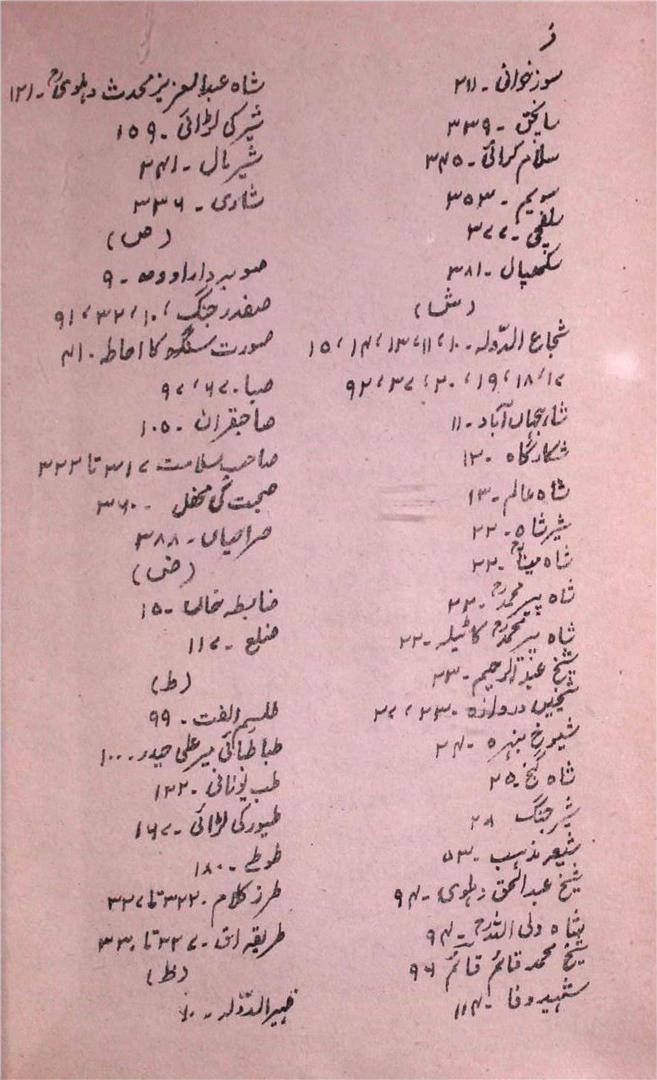 ز
سوزخوانی ۔ ۲۱۱
۳۳۹
سلام کرائی ۔ ۳۴۵
سویم ۔ ۳۵۳
سلفچی ۔ ۳۷۷
سکھپال ۔ ۳۸۱
(ش)
شجاع الدّولہ ۔ ۱۰، ۱۱، ۱۳، ۱۴، ۱۵،
۱۷، ۱۸، ۱۹، ۲۰، ۳۷، ۹۲
شاہجہاں آباد ۔ ۱۱
شکارگاہ ۔ ۱۳
شاہ عالم ۔ ۱۳
شیرشاہ ۔ ۲۲
شاہ میناؒ ۔ ۲۲
شاہ پیر محمدؒ ۔ ۲۲
شاہ پیر محمدؒ کا ٹیلہ ۔ ۲۲
شیخ عبدالرحیم ۔ ۲۳
دروازہ ۔ ۲۳، ۲۷
شیوخ ۔ ۲۴
شاہ گنج ۔ ۲۵
شیر جنگ ۲۸
شیعہ مذہب ۔ ۵۳
شیخ عبدالحق دہلوی ۔ ۹۴
شاہ ولی اللہؒ ۔ ۹۴
شیخ محمد قائم قائم ۹۶
شہید وفا ۔ ۱۱۴
شاہ عبدالعزیز محدث دہلویؒ ۔ ۱۲۱
شیر کی لڑائی ۔ ۱۵۹
شیرمال ۔ ۲۴۱
شادی ۔ ۳۳۶
(ص)
صوبہ دار اودھ ۔ ۹
صفدر جنگ ۱۰، ۳۲، ۹۱
صورت سنگھ کا احاطہ ۔ ۴۱
صبا ۔ ۶۷، ۹۷
صاحبقران ۔ ۱۰۵
صاحب سلامت ۳۱۷ تا ۳۲۲
صحبت کی محفل ۔ ۳۶۰
صراحیاں ۔ ۳۸۸
(ض)
ضابطہ خاں ۔ ۱۵
ضلع ۔ ۱۱۷
(ط)
طلسم الفت ۔ ۹۹
طباطبائی میر علی حیدر ۔ ۱۰۰
طب یونانی ۔ ۱۲۲
طیور کی لڑائی ۔ ۱۶۷
طوطے ۔ ۱۸۰
طرز کلام ۔ ۳۲۲ تا ۳۲۷
۳۲۷ تا ۳۳۰
(ظ)
ظہیر الدّولہ ۔ ۷۰